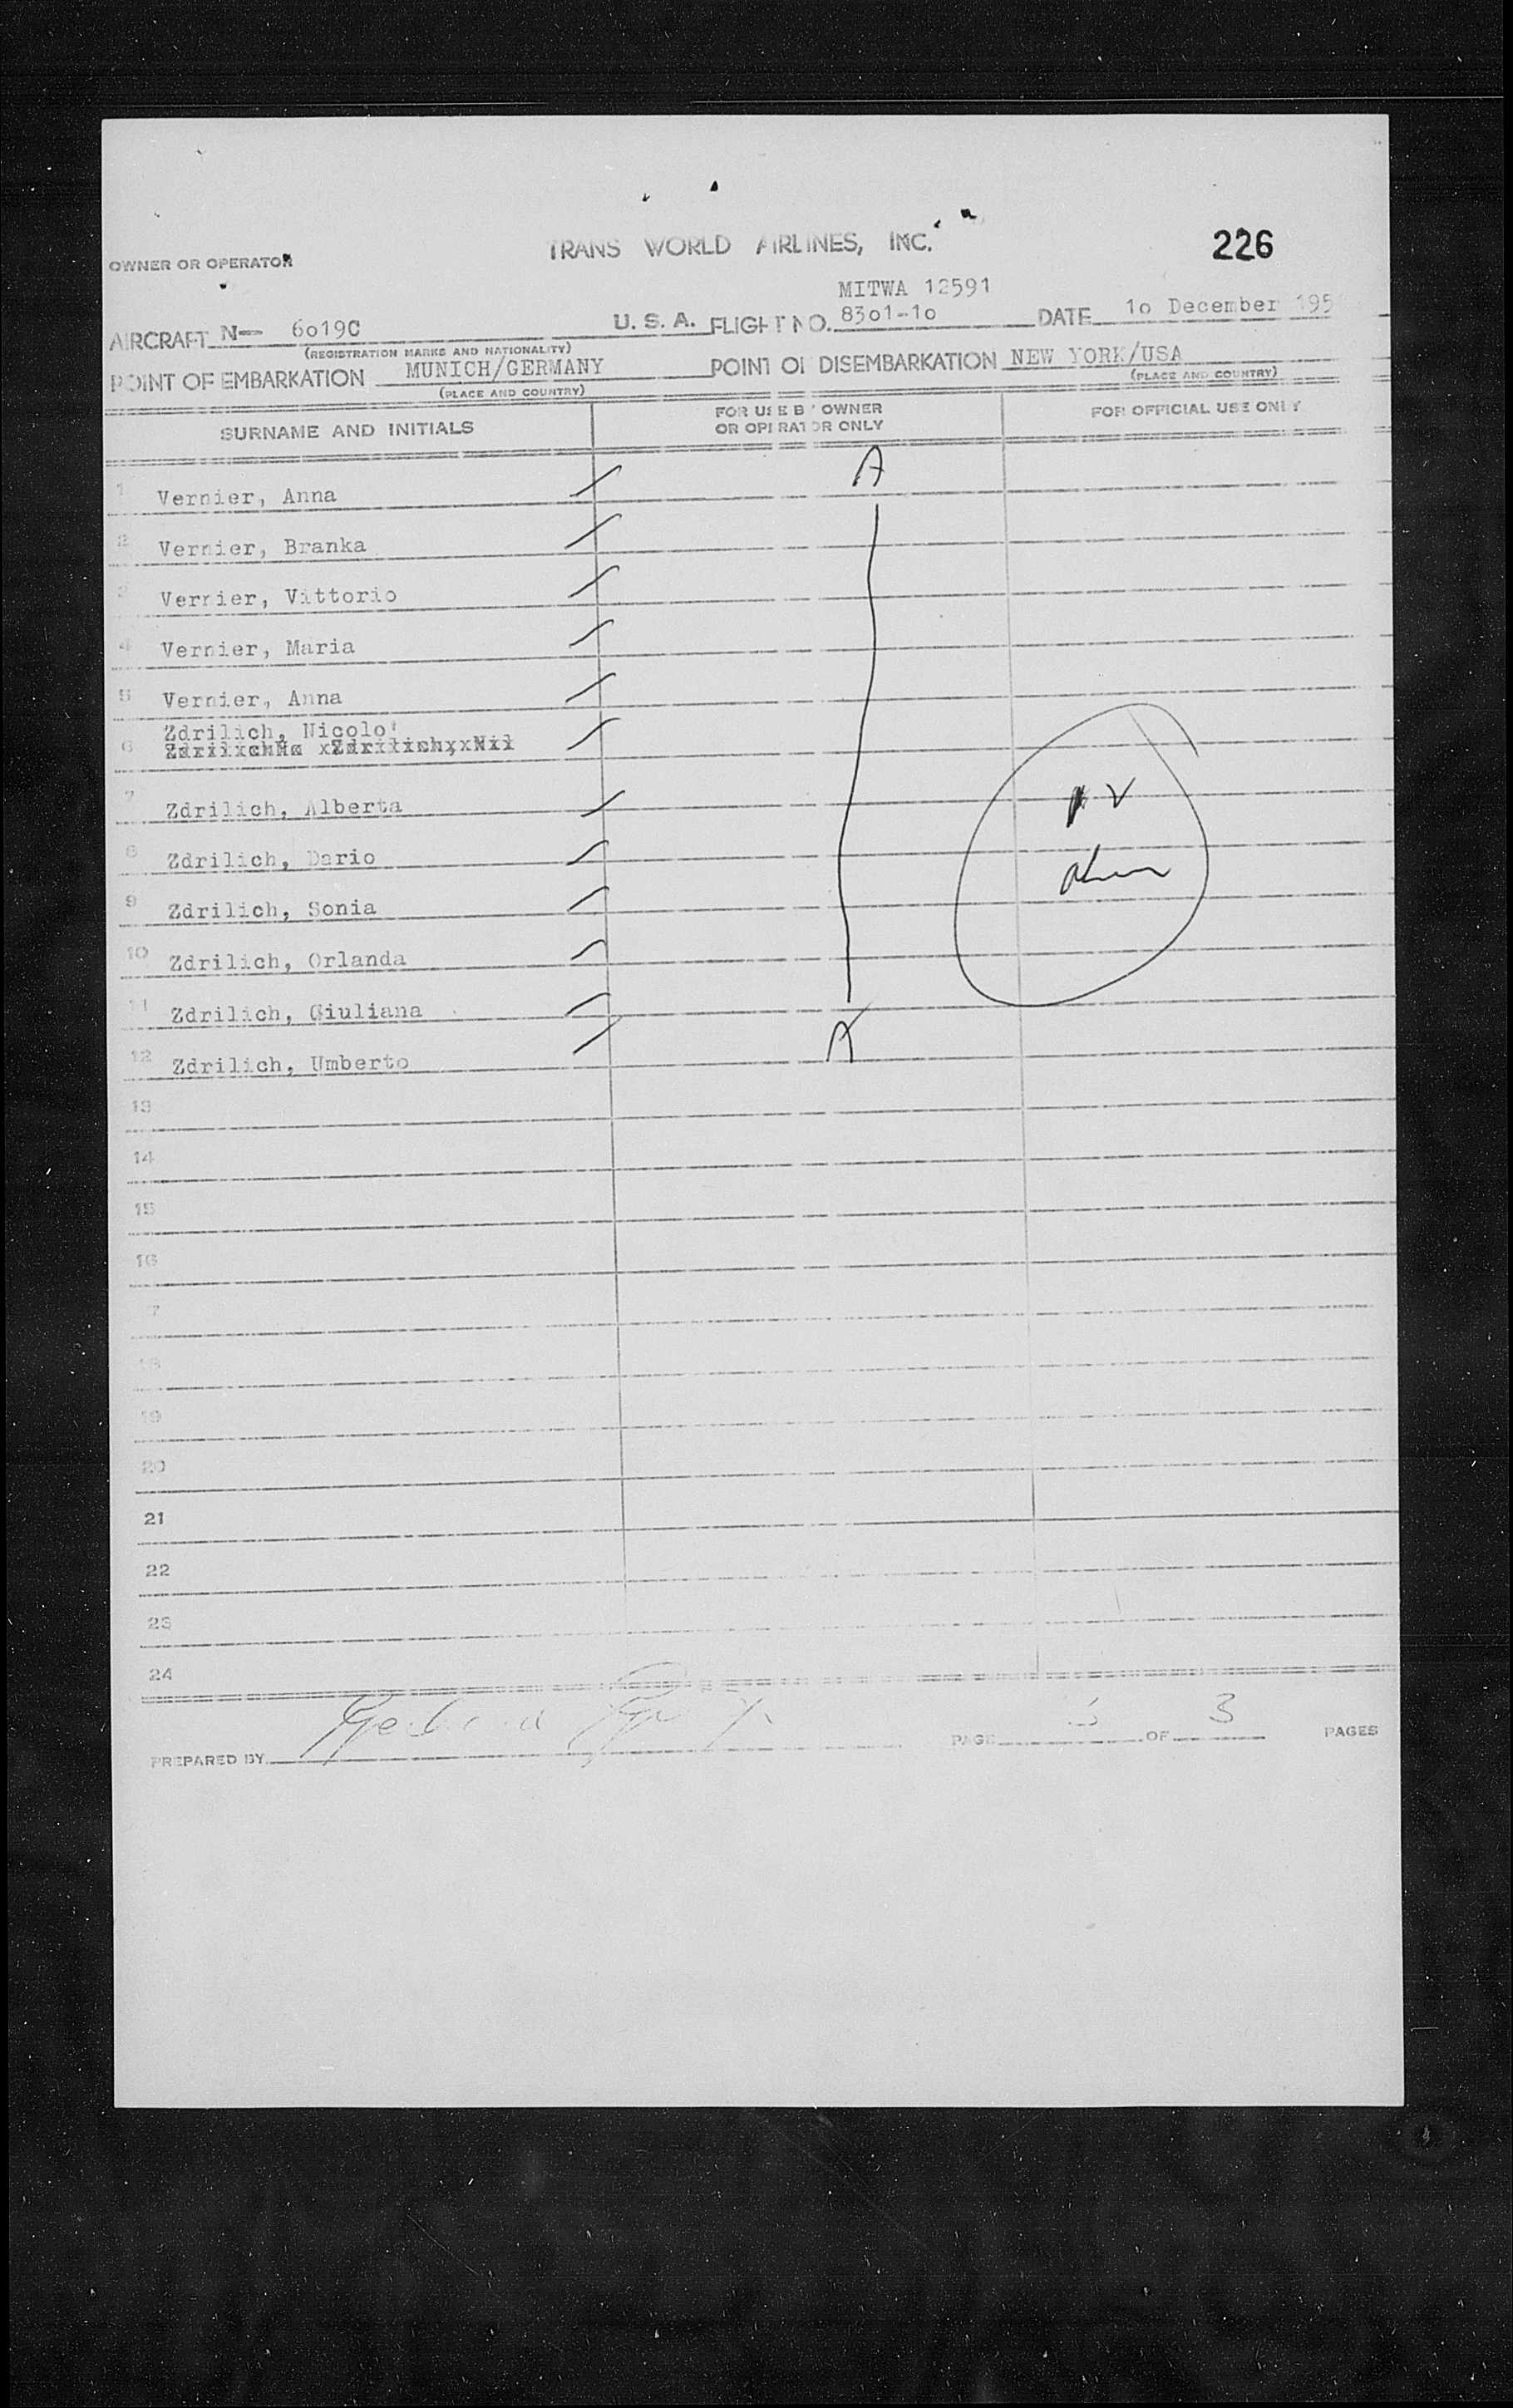 226
TRANS WORLD AIRLINES, INC.
OWNER OR OPERATOR
MITWA 12591
AIRCRAFT N— 6o19C U. S. A. FLIGHT NO. 83o1-1o DATE 1o December 195
(REGISTRATION MARKS AND NATIONALITY)
POINT OF EMBARKATION MUNICH/GERMANY POINT OF DISEMBARKATION NEW YORK/USA
(PLACE AND COUNTRY) (PLACE AND COUNTRY)
SURNAME AND INITIALS FOR USE BY OWNER OR OPERATOR ONLY FOR OFFICIAL USE ONLY
A
1 Vernier, Anna
2 Vernier, Branka
3 Vernier, Vittorio
4 Vernier, Maria
5 Vernier, Anna
Zdrilich, Nicolo'
6
7 Zdrilich, Alberta
8 Zdrilich, Dario
9 Zdrilich, Sonia
10 Zdrilich, Orlanda
11 Zdrilich, Giuliana
12 Zdrilich, Umberto A
13
14
15
16
17
18
19
20
21
22
23
24
PREPARED BY PAGE 3 OF 3 PAGES